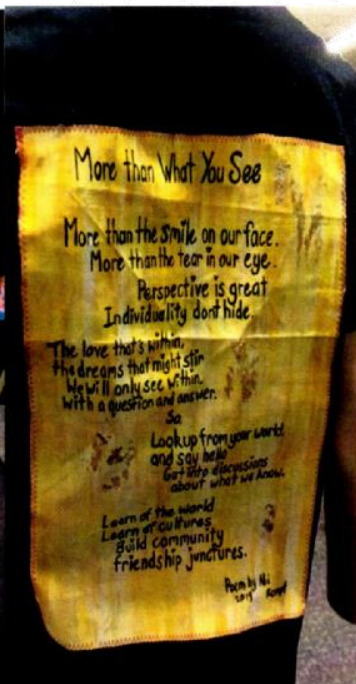 More than What You See
More than the smile on our face.
More than the tear in our eye.
Perspective is great
Individuality dont hide.
The love that's within,
the dreams that might stir
We will only see within,
with a question and answer.
So
Look up from your world.
and say hello
Get into discussions
about what we know.
Learn of the world
Learn of cultures
Build community
friendship junctures.
Poem by